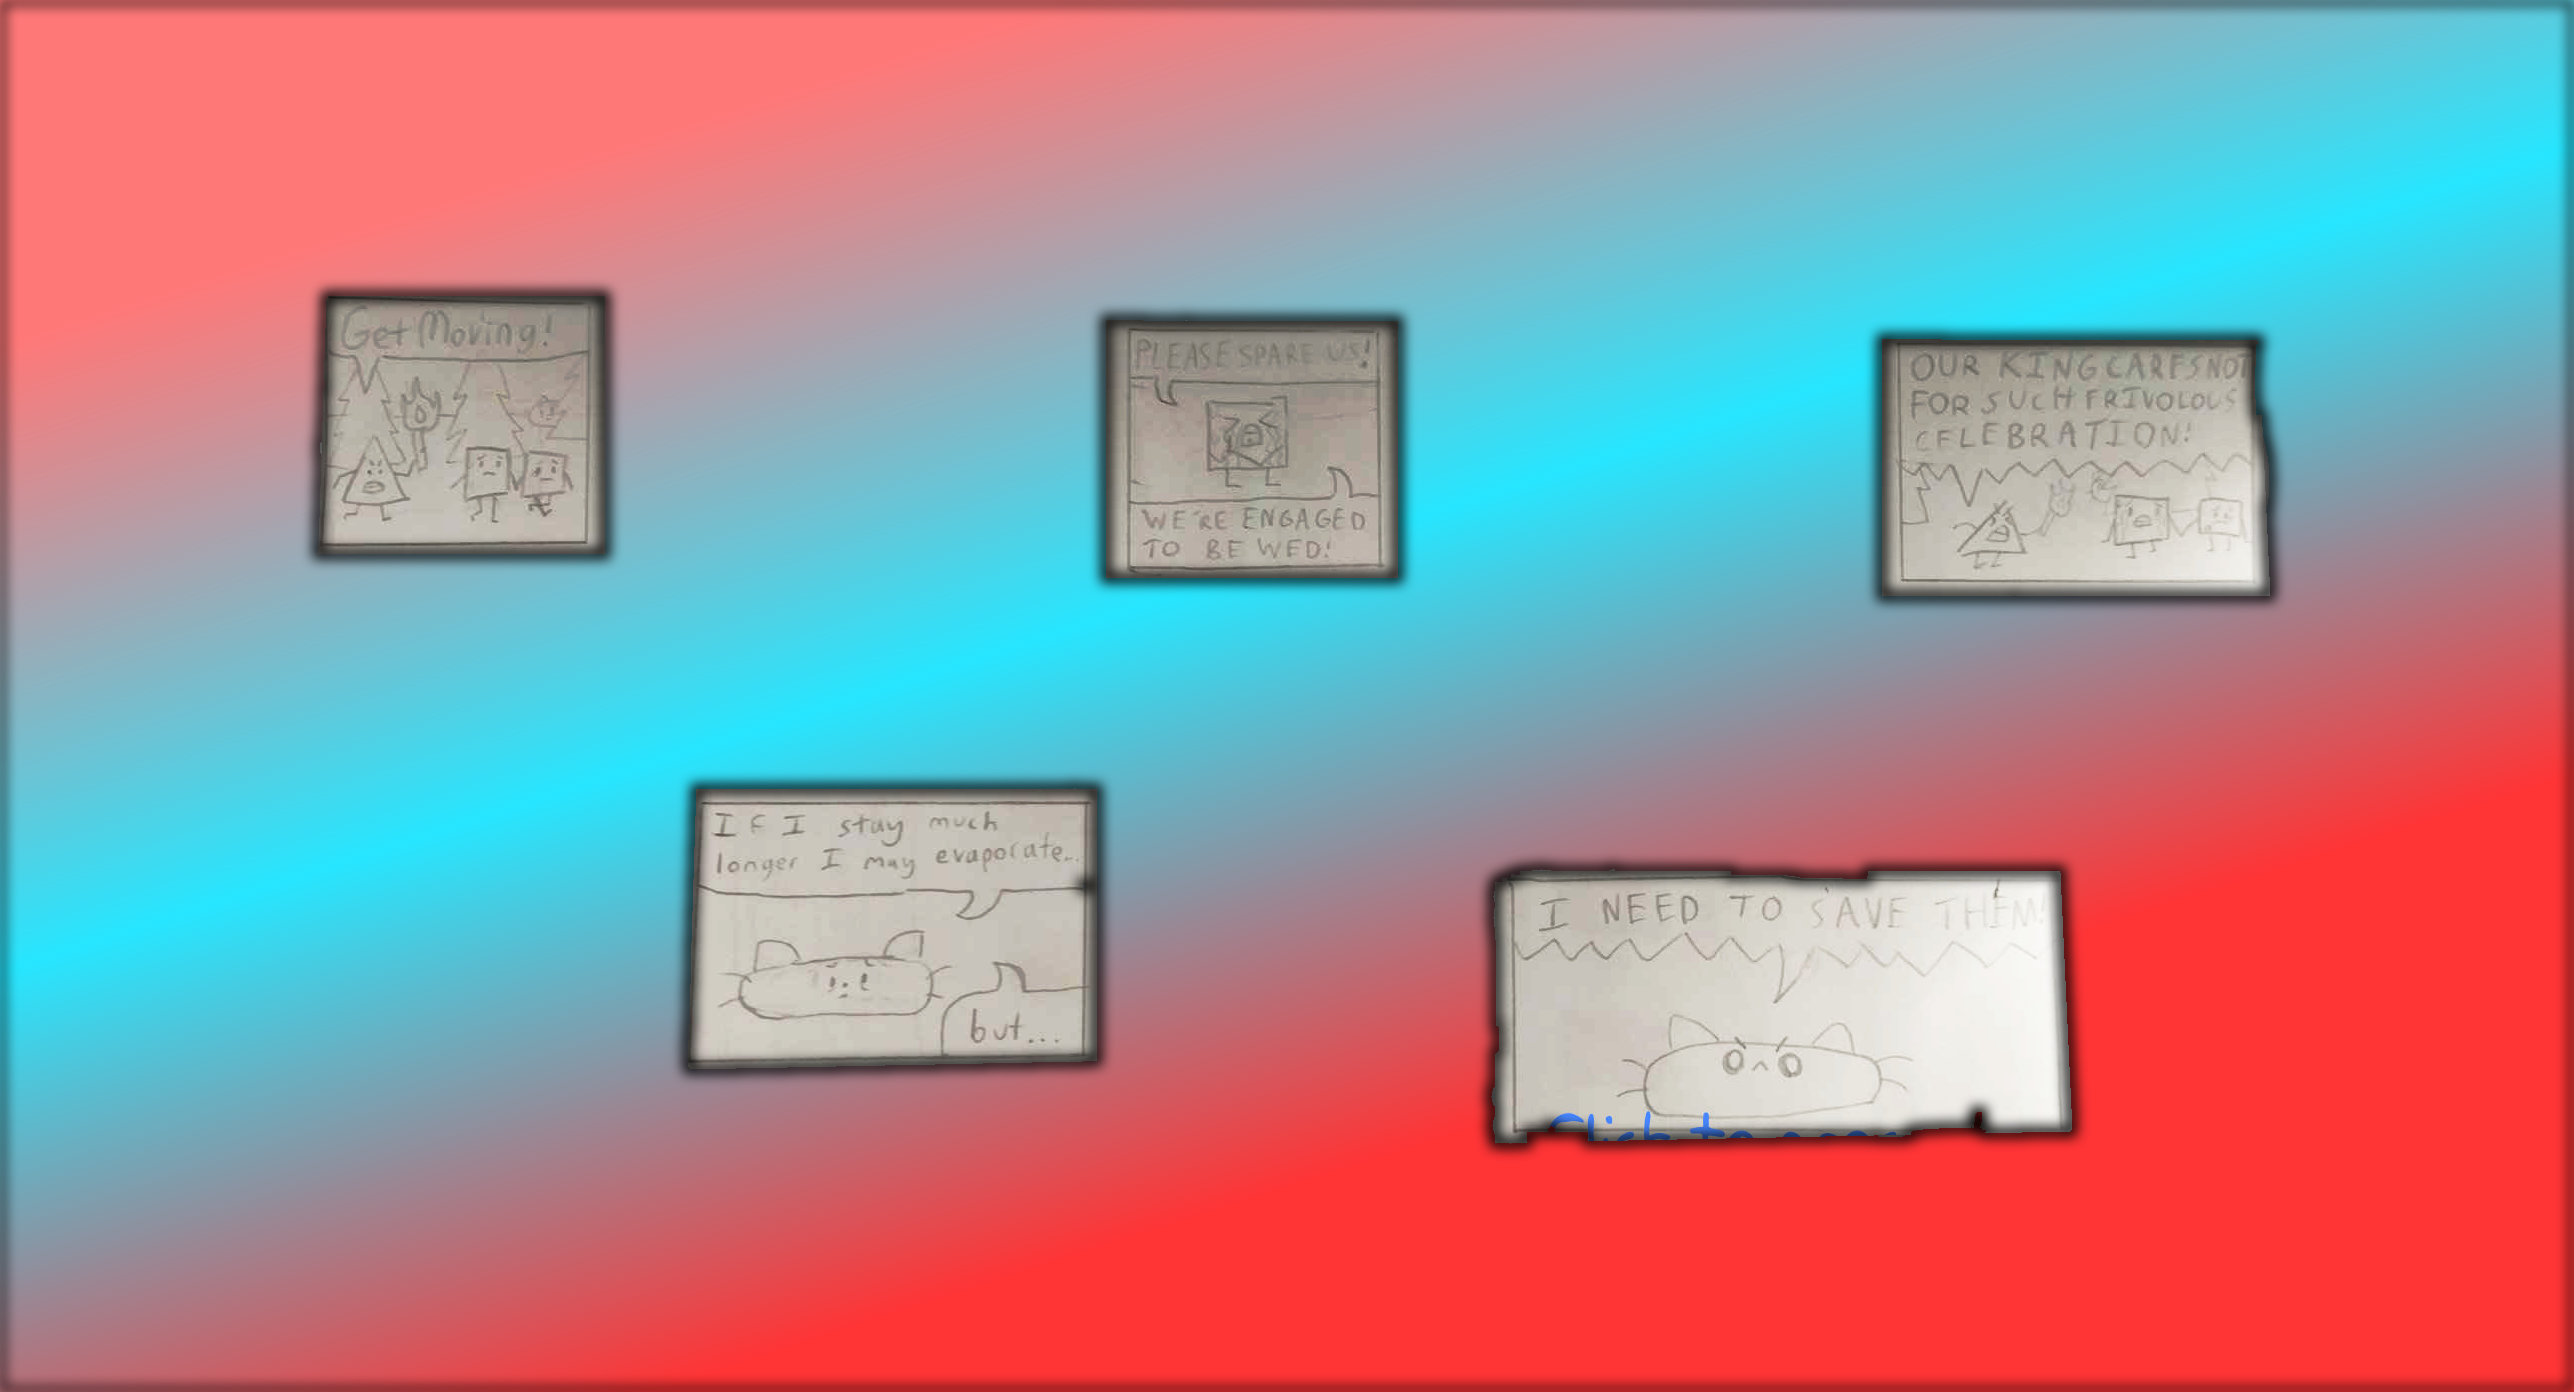 Get Moving!
PLEASE SPARE US!
WE'RE ENGAGED
TO BE WED!
OUR KING CARES NOT
FOR SUCH FRIVOLOUS
CELEBRATION!
If I stay much
longer I may evaporate..
but...
I NEED TO SAVE THEM!
Click to